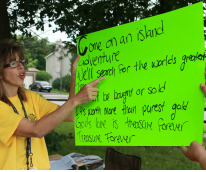 Come on an island
Adventure
We'll search for the worlds greatest
be bought or sold
worth more than purest gold
God's love is treasure forever
Treasure Forever